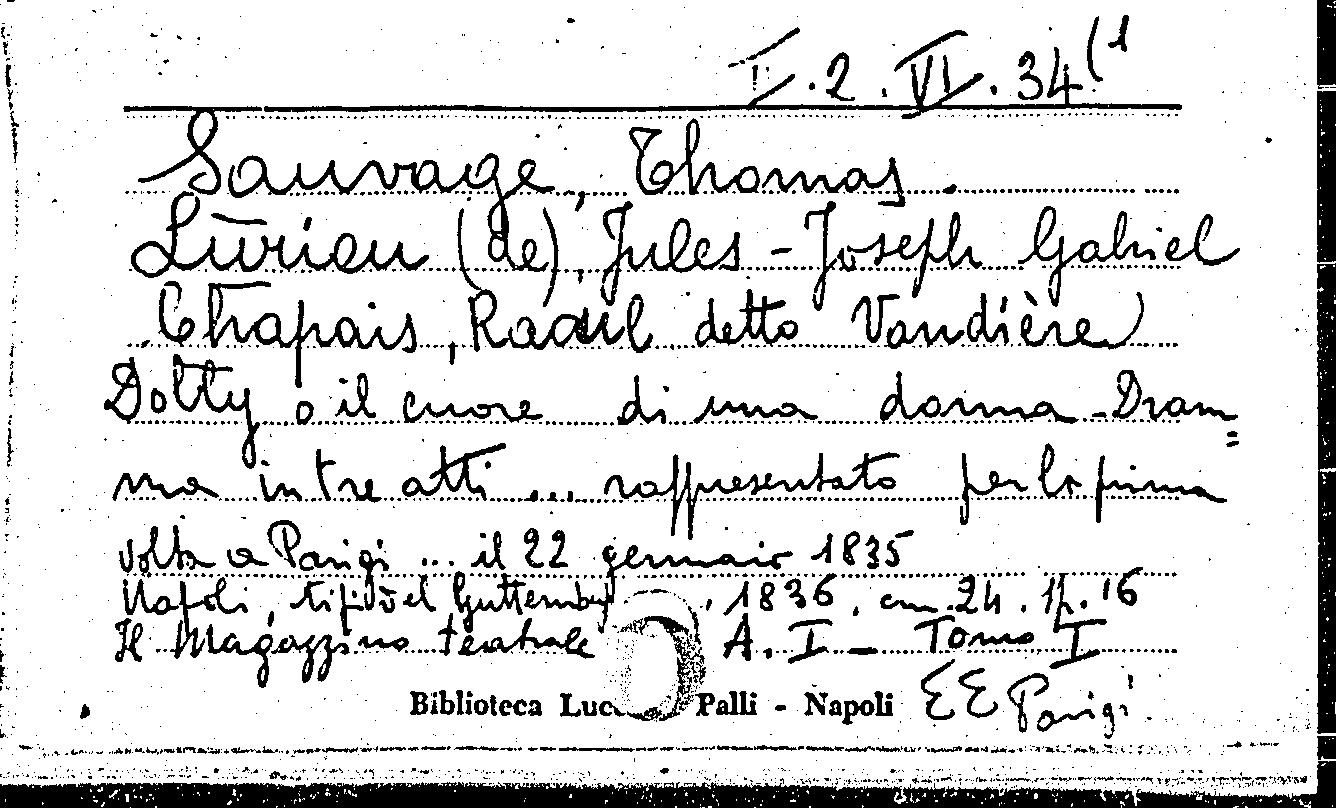 I.2.VI.34(1
Sauvage, Thomas.
Lurieu (de), Jules-Joseph Gabriel
Chapais, Raoul detto Vandière)
Dotty o il cuore di una donna - Dram=
ma in tre atti ... rappresentato per la prima
volta a Parigi ... il 22 gennaio 1835
Napoli, tip. del Guttemberg, 1836, cm. 24. p. 16
Il Magazzino teatrale A. I - Tomo I
Biblioteca Luc Palli - Napoli EE Parigi